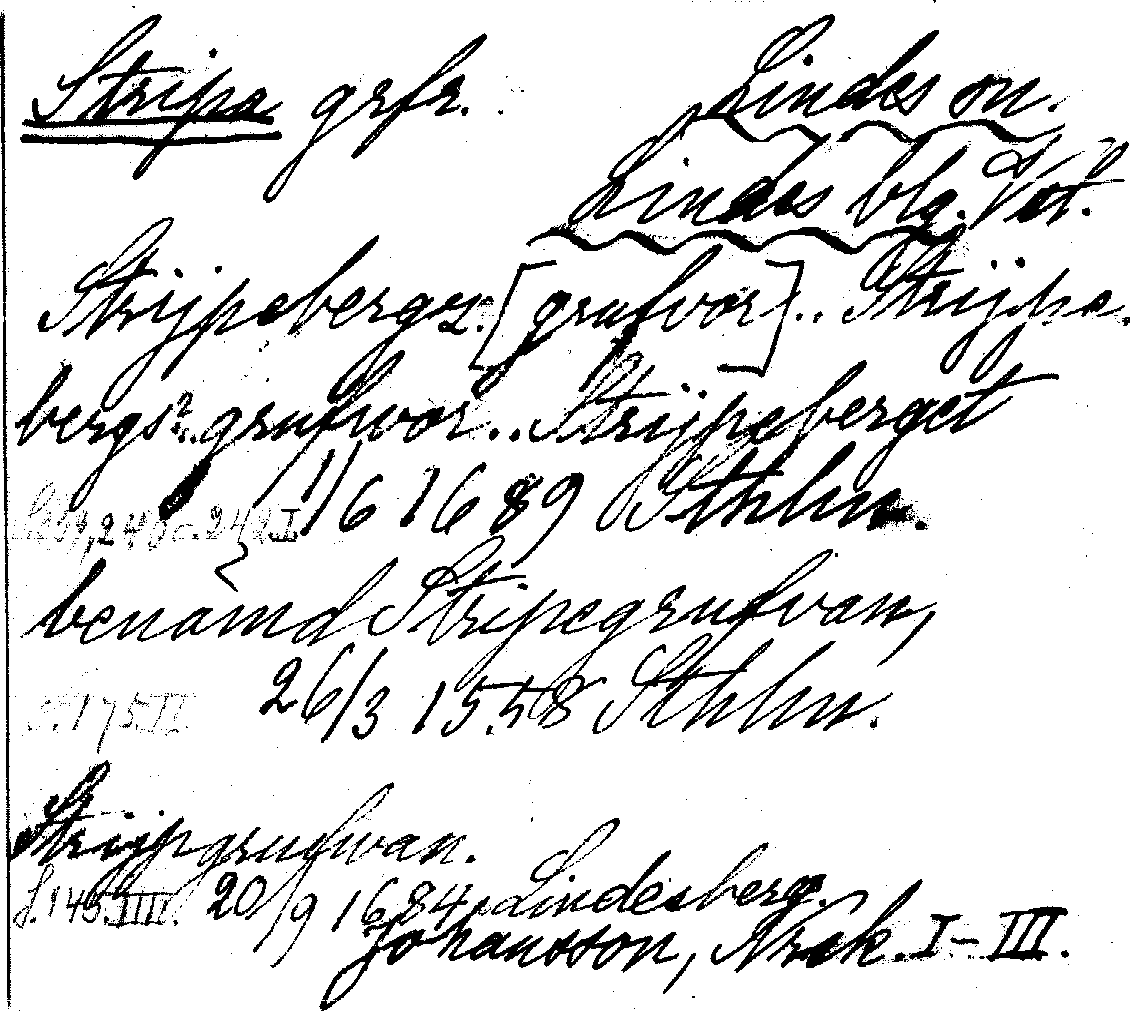 Stripa grfr. Lindes sn.
Lindes blg. Vst.
Strijpebergz. [grufvor].. Strijpe-
bergs grufwor... Strijpeberget
1/6 1689 Sthlm.
benämd Stripegrufvan,
s. 175 II 26/3 1558 Sthlm.
Strijpgrufwan.
S. 145 III. 20/9 1684, Lindesberg.
Johansson, Nrck. I–III.